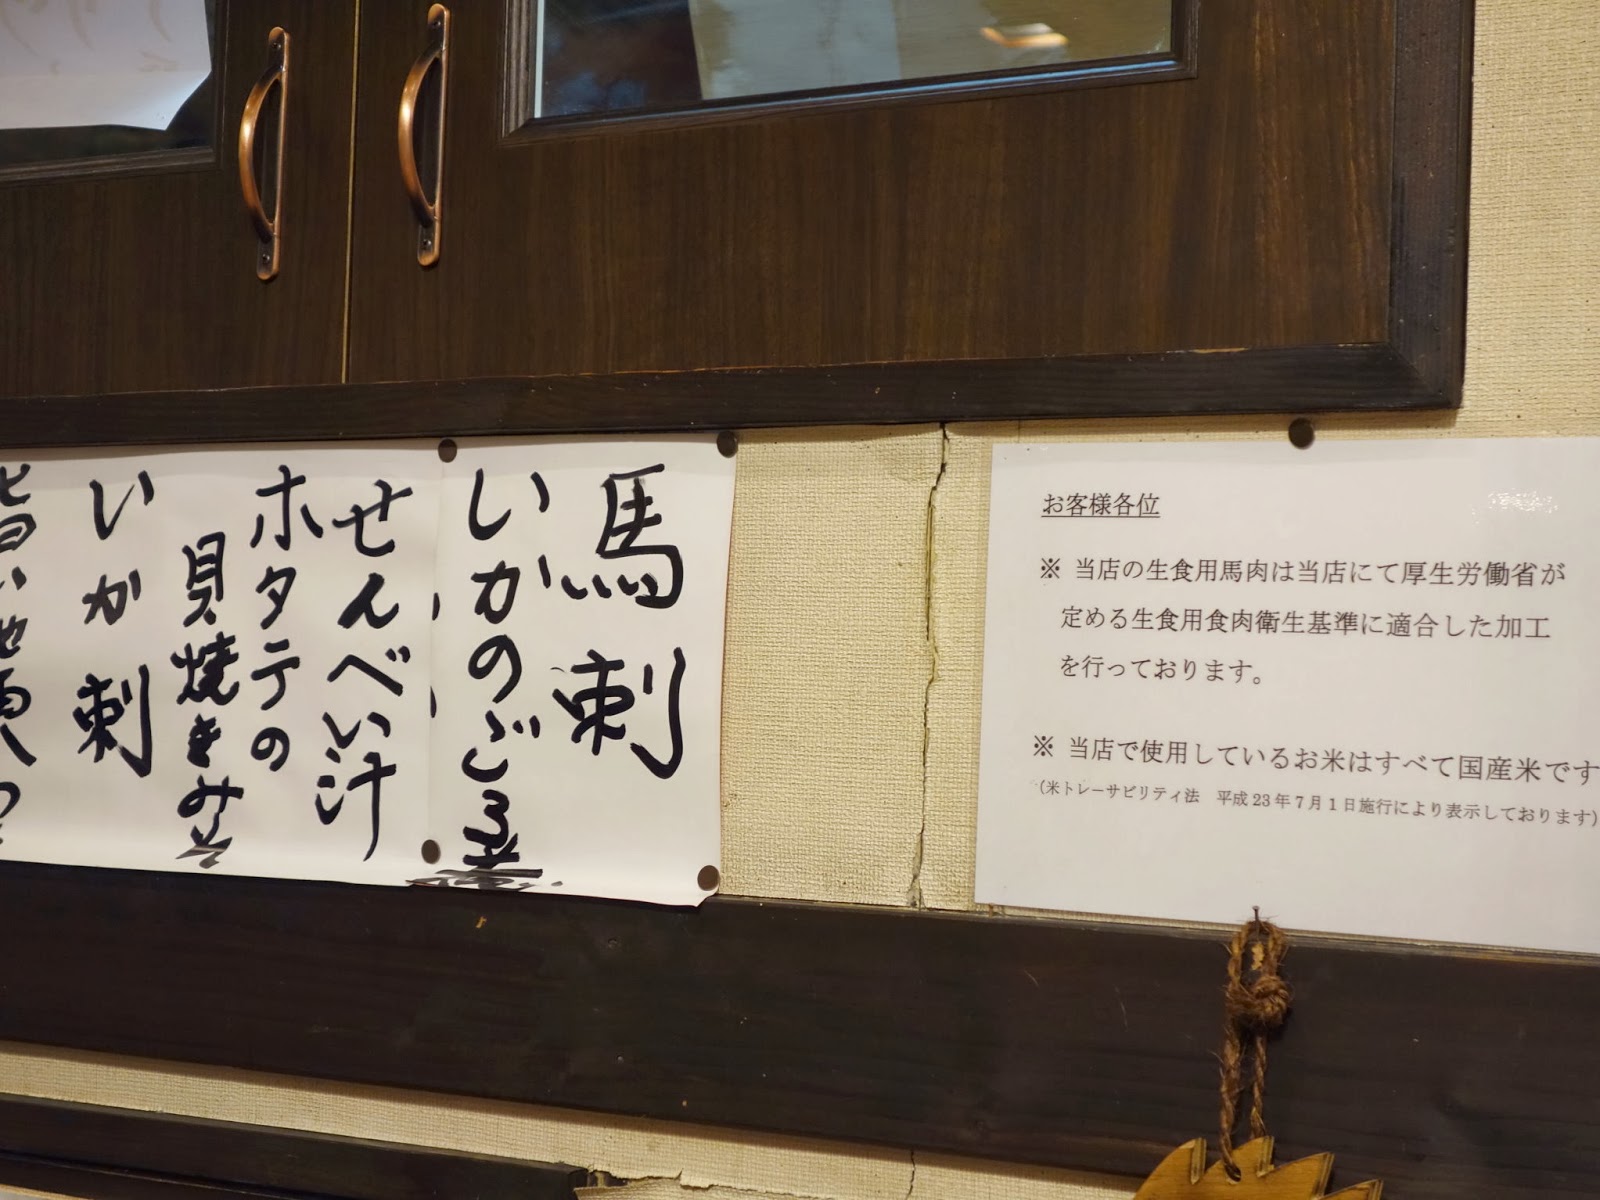 馬刺
いかのごろ煮
せんべい汁
ホタテの
貝焼きみそ
いか刺
お客様各位
※ 当店の生食用馬肉は当店にて厚生労働省が
定める生食用食肉衛生基準に適合した加工
を行っております。
※ 当店で使用しているお米はすべて国産米です
(米トレーサビリティ法　平成23年7月1日施行により表示しております)